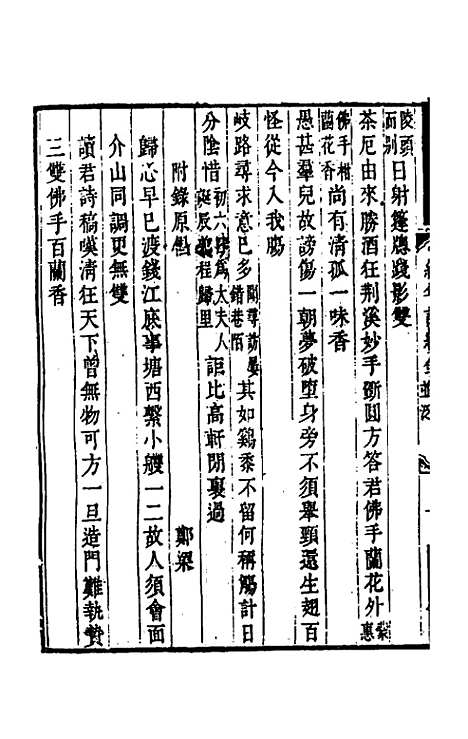 陵頭而別日射篷牕幾影雙
茶厄由來勝酒狂荆溪妙手斲圓方答君佛手蘭花外惠
佛手柑蘭花香尚有清孤一味香
愚甚羣兒故謗傷一朝夢破墮身旁不須舉頸還生翅百
怪從今入我腸
岐路尋求意已多聞尋訪屢錯巷陌其如鷄黍不留何稱觴計日
分陰惜初六太夫人誕辰程歸里詎比高軒閉裏過
附錄原倡 鄭梁
歸心早已渡錢江底事塘西繫小艭一二故人須會面
介山同調更無雙
讀君詩稿嘆清狂天下曾無物可方一旦造門難執贄
三雙佛手百蘭香